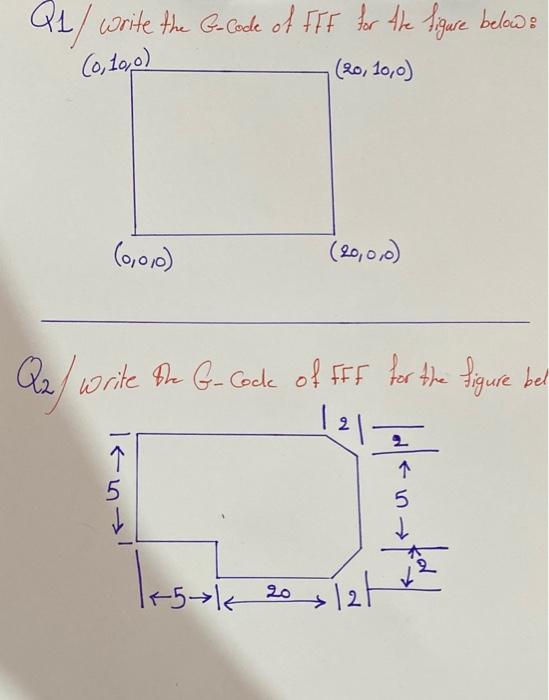 Q1/ write the G-Code of FFF for the figure below:
(0,10,0) (20,10,0)
(0,0,0) (20,0,0)
Q2/ write the G-Code of FFF for the figure bel
2
2
5
5
2
5 20 2